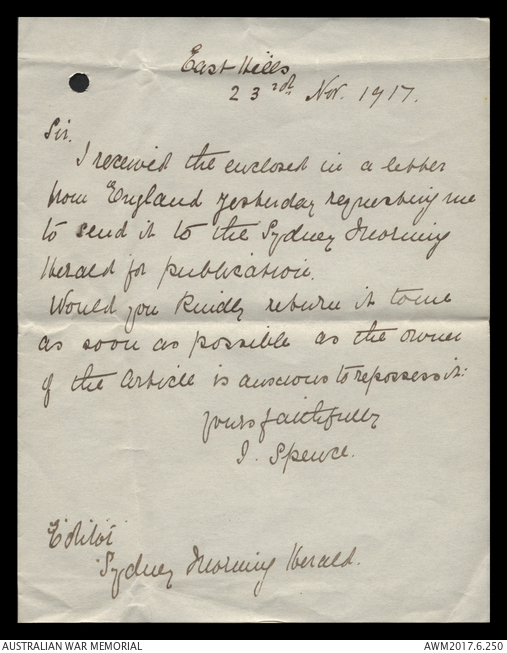 East Hills
23rd Nov. 1917.
Sir.
I received the enclosed in a letter
from England yesterday requesting me
to send it to the Sydney Morning
Herald for publication.
Would you kindly return it to me
as soon as possible as the owner
of the Article is anxious to repossess it.
yours faithfully
I. Spence.
Editor
Sydney Morning Herald.
AUSTRALIAN WAR MEMORIAL
AWM2017.6.250